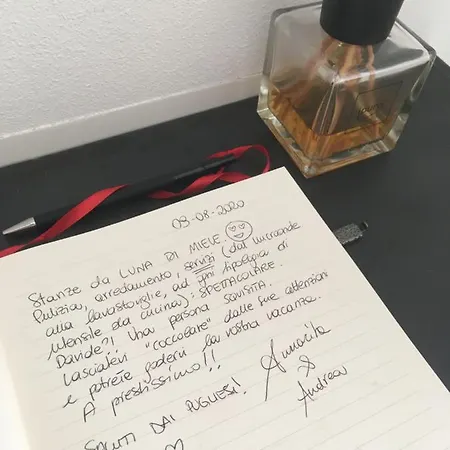 09-08-2020
Stanze da LUNA DI MIELE.
Pulizia, arredamento, servizi (dal microonde
alla lavastoviglie, ad ogni tipologia di
utensile da cucina): SPETTACOLARE.
Davide?! Una persona SQUISITA.
Lasciatevi "coccolare" dalle sue attenzioni
e potrete godervi la vostra vacanza.
A prestissimo!!
Annarita
&
Andrea
SALUTI DAI PUGLIESI!